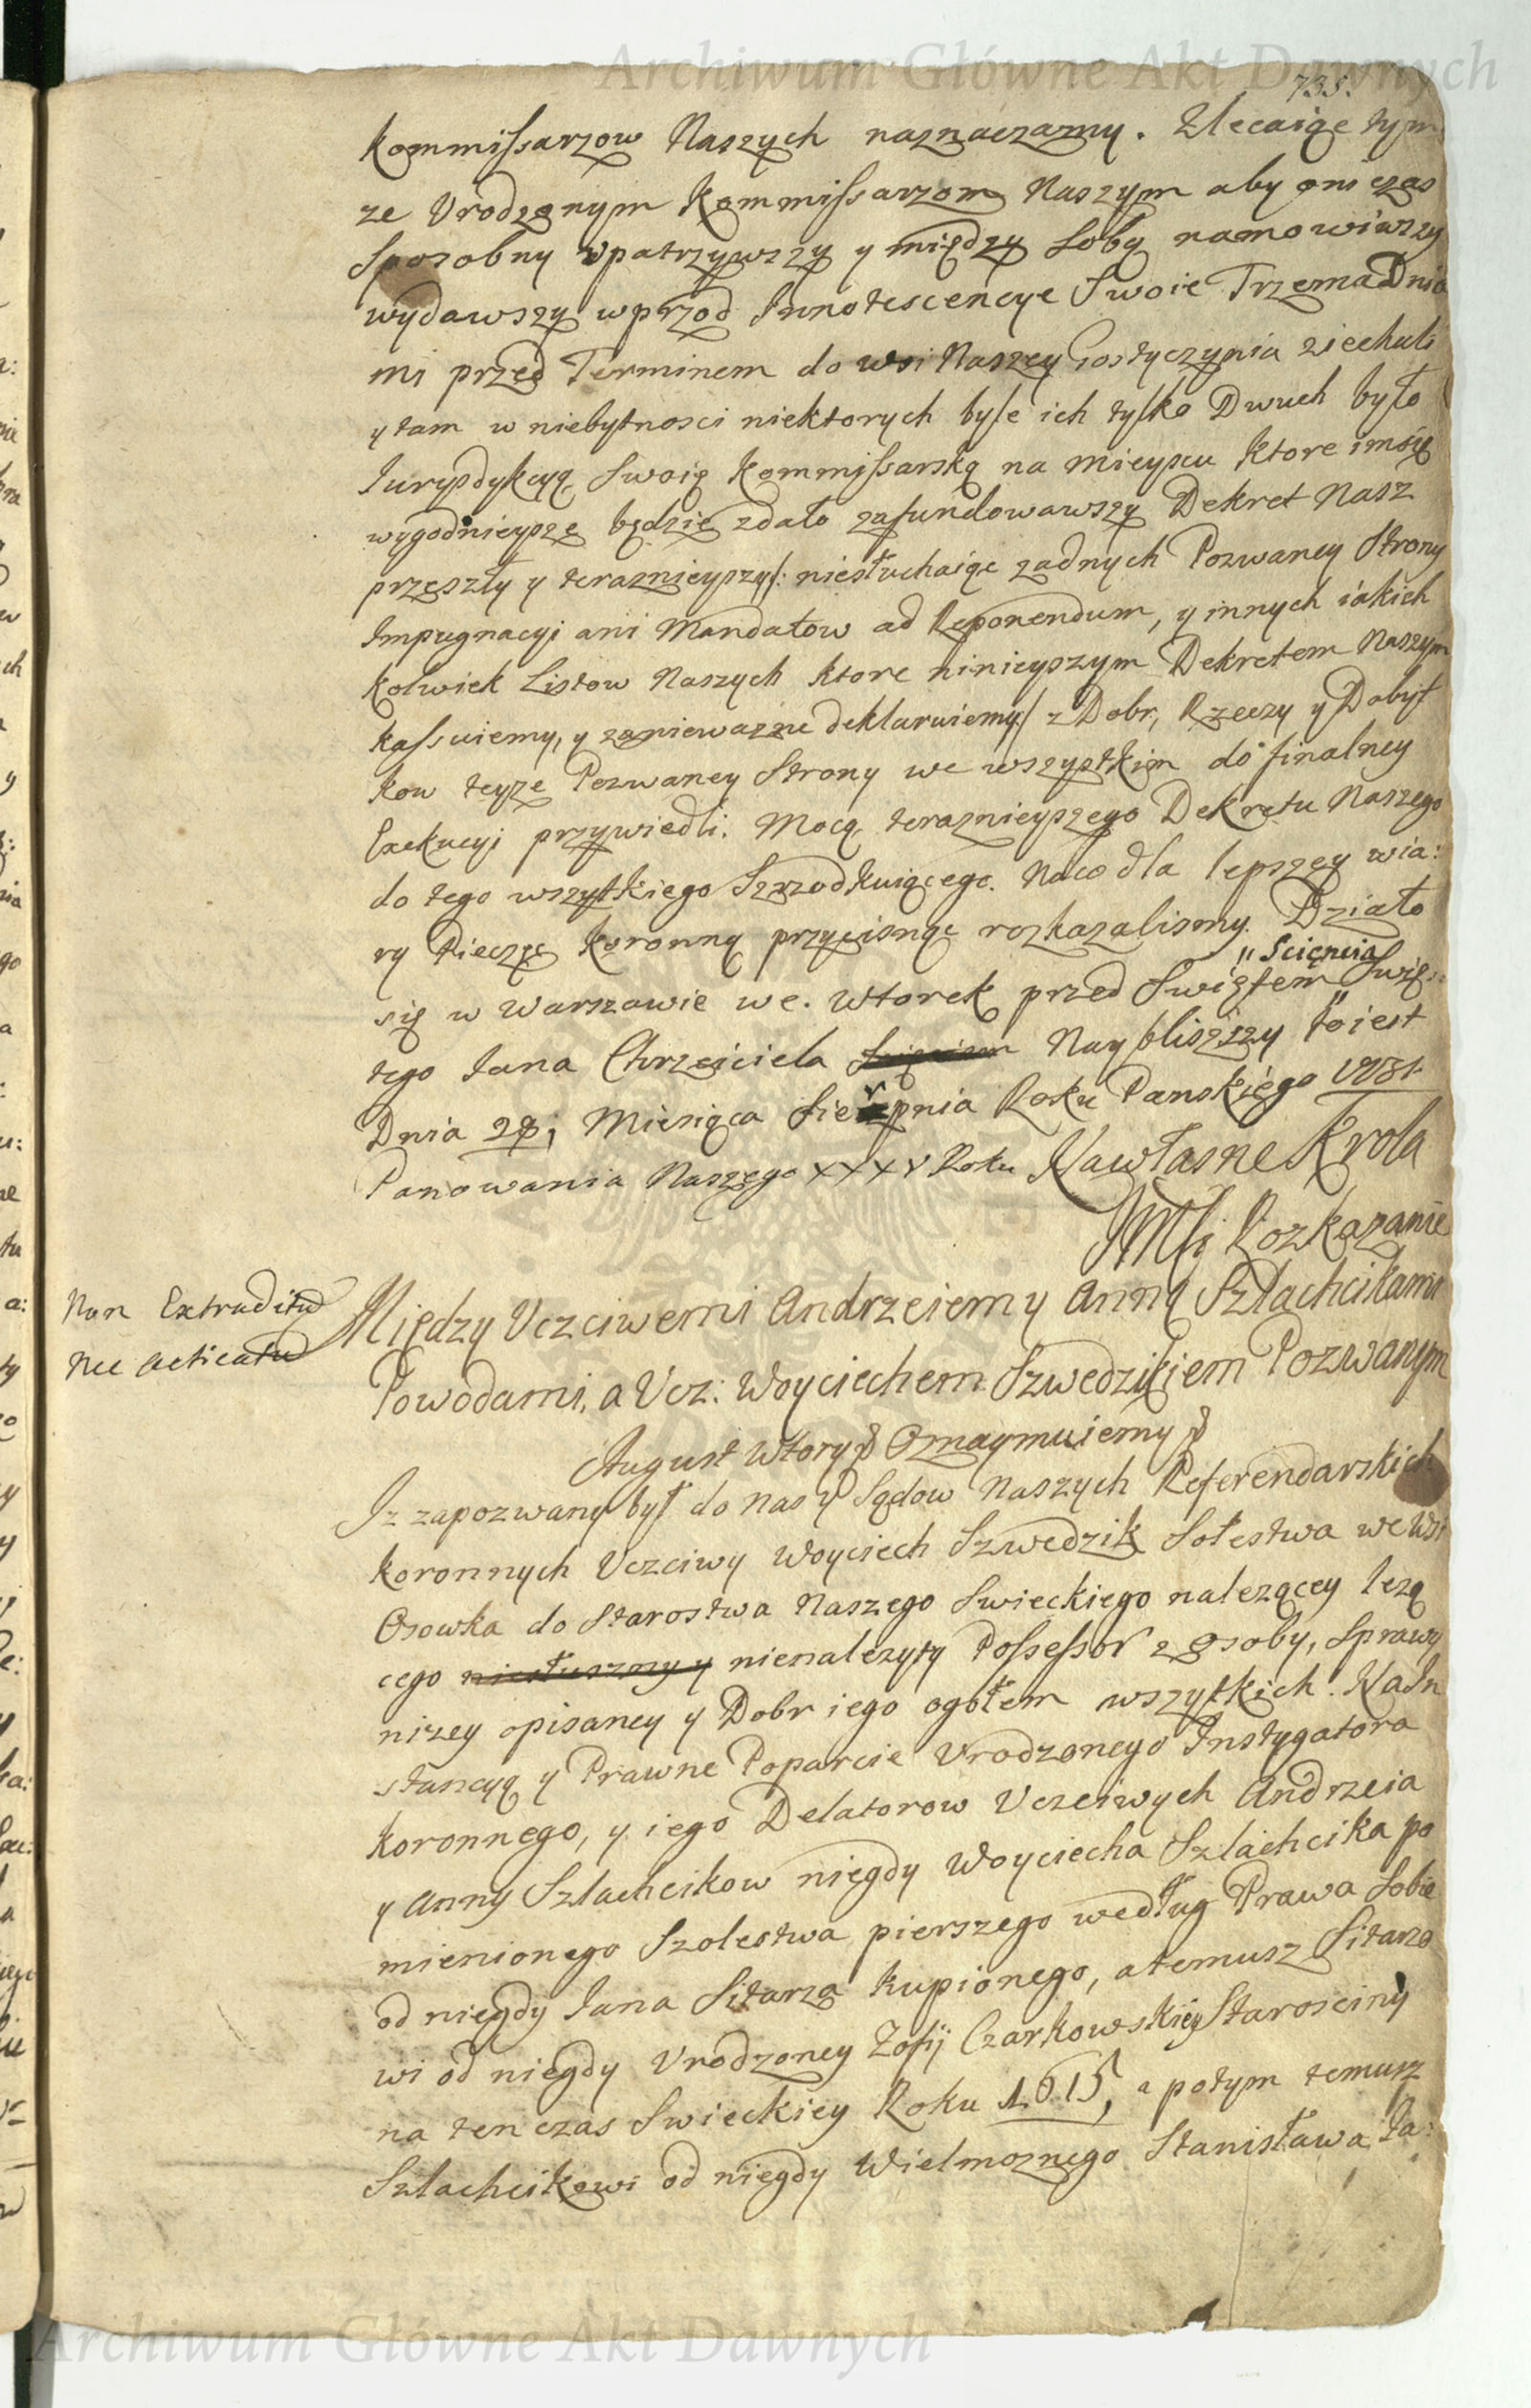 Archiwum Główne Akt Dawnych
735.
Kommissarzow Naszych naznaczamy. Zlecaiąc tym
ze Vrodzonym Kommissarzom Naszym aby oni czas
Sposobny vpatrzywszy y między Sobą namowiwszy
wydawszy wprzod Innotescencye Swoie Trzema Dnia
mi przed Terminem do wsi Naszey Gostyczynia ziechali
y tam w niebytnosci niektorych byle ich tylko Dwuch było
Iurysdykcyą Swoię Kommissarską na mieyscu ktore im się
wygodnieysze będzie zdało zafundowawszy Dekret Nasz
przeszły y teraznieyszy /: niesłuchaiąc zadnych Pozwaney Strony
Impugnacyi ani Mandatow ad Reponendum, y innych iakich
kolwiek Listow Naszych ktore ninieyszym Dekretem Naszym
kassuiemy, y zaniewazne deklaruiemy :/ z Dobr, Rzeczy y Dobyt
kow teyze Pozwaney Strony we wszystkim do finalney
Exekucyi przywiedli. Mocą teraznieyszego Dekretu Naszego
do tego wszytkiego Szrzodkuiącego. Naco dla lepszey wia:
ry Pieczęc Koronną przycisnąc rozkazalismy. Działo
" Scięncia
się w Warszawie we. Wtorek przed Swiętem " Swię:
tego Iana Chrzciciela Nayblisszy to iest
Dnia 28, Miesiąca Sierpnia Roku Panskiego 1731.
Panowania Naszego XXXV Roku Na własne Krola
JMCi Rozkazanie
Non Extraditũ
Nec Acticatũ
Między Vczciwemi Andrzeiem y Anną Szlachcikami
Powodami, a Vcz: Woyciechem Szwedzikiem Pozwanym
August Wtory Oznaymuiemy
Iz zapozwany był do nas y Sądow Naszych Referendarskich
koronnych Vczciwy Woyciech Szwedzik Sołestwa we Wsi
Osowka do Starostwa Naszego Swieckiego nalezącey lezą
cego niesłuszny y nienalezyty Possessor z Osoby, Sprawy
nizey opisaney y Dobr iego ogołem wszytkich. Na In
stancyą y Prawne Poparcie Vrodzonego Instygatora
koronnego, y iego Delatorow Vczciwych Andrzeia
y Anny Szlachcikow niegdy Woyciecha Szlachcika po
mienionego Szolestwa pierszego według Prawa Sobie
od niegdy Iana Sitarza kupionego, a temusz Sitarzo
wi od niegdy Vrodzoney Zofij Czarkowskiey Starosciny
na ten czas Swieckiey Roku 1615, a potym temusz
Szlachcikowi od niegdy Wielmoznego Stanisława Ia:
Archiwum Główne Akt Dawnych